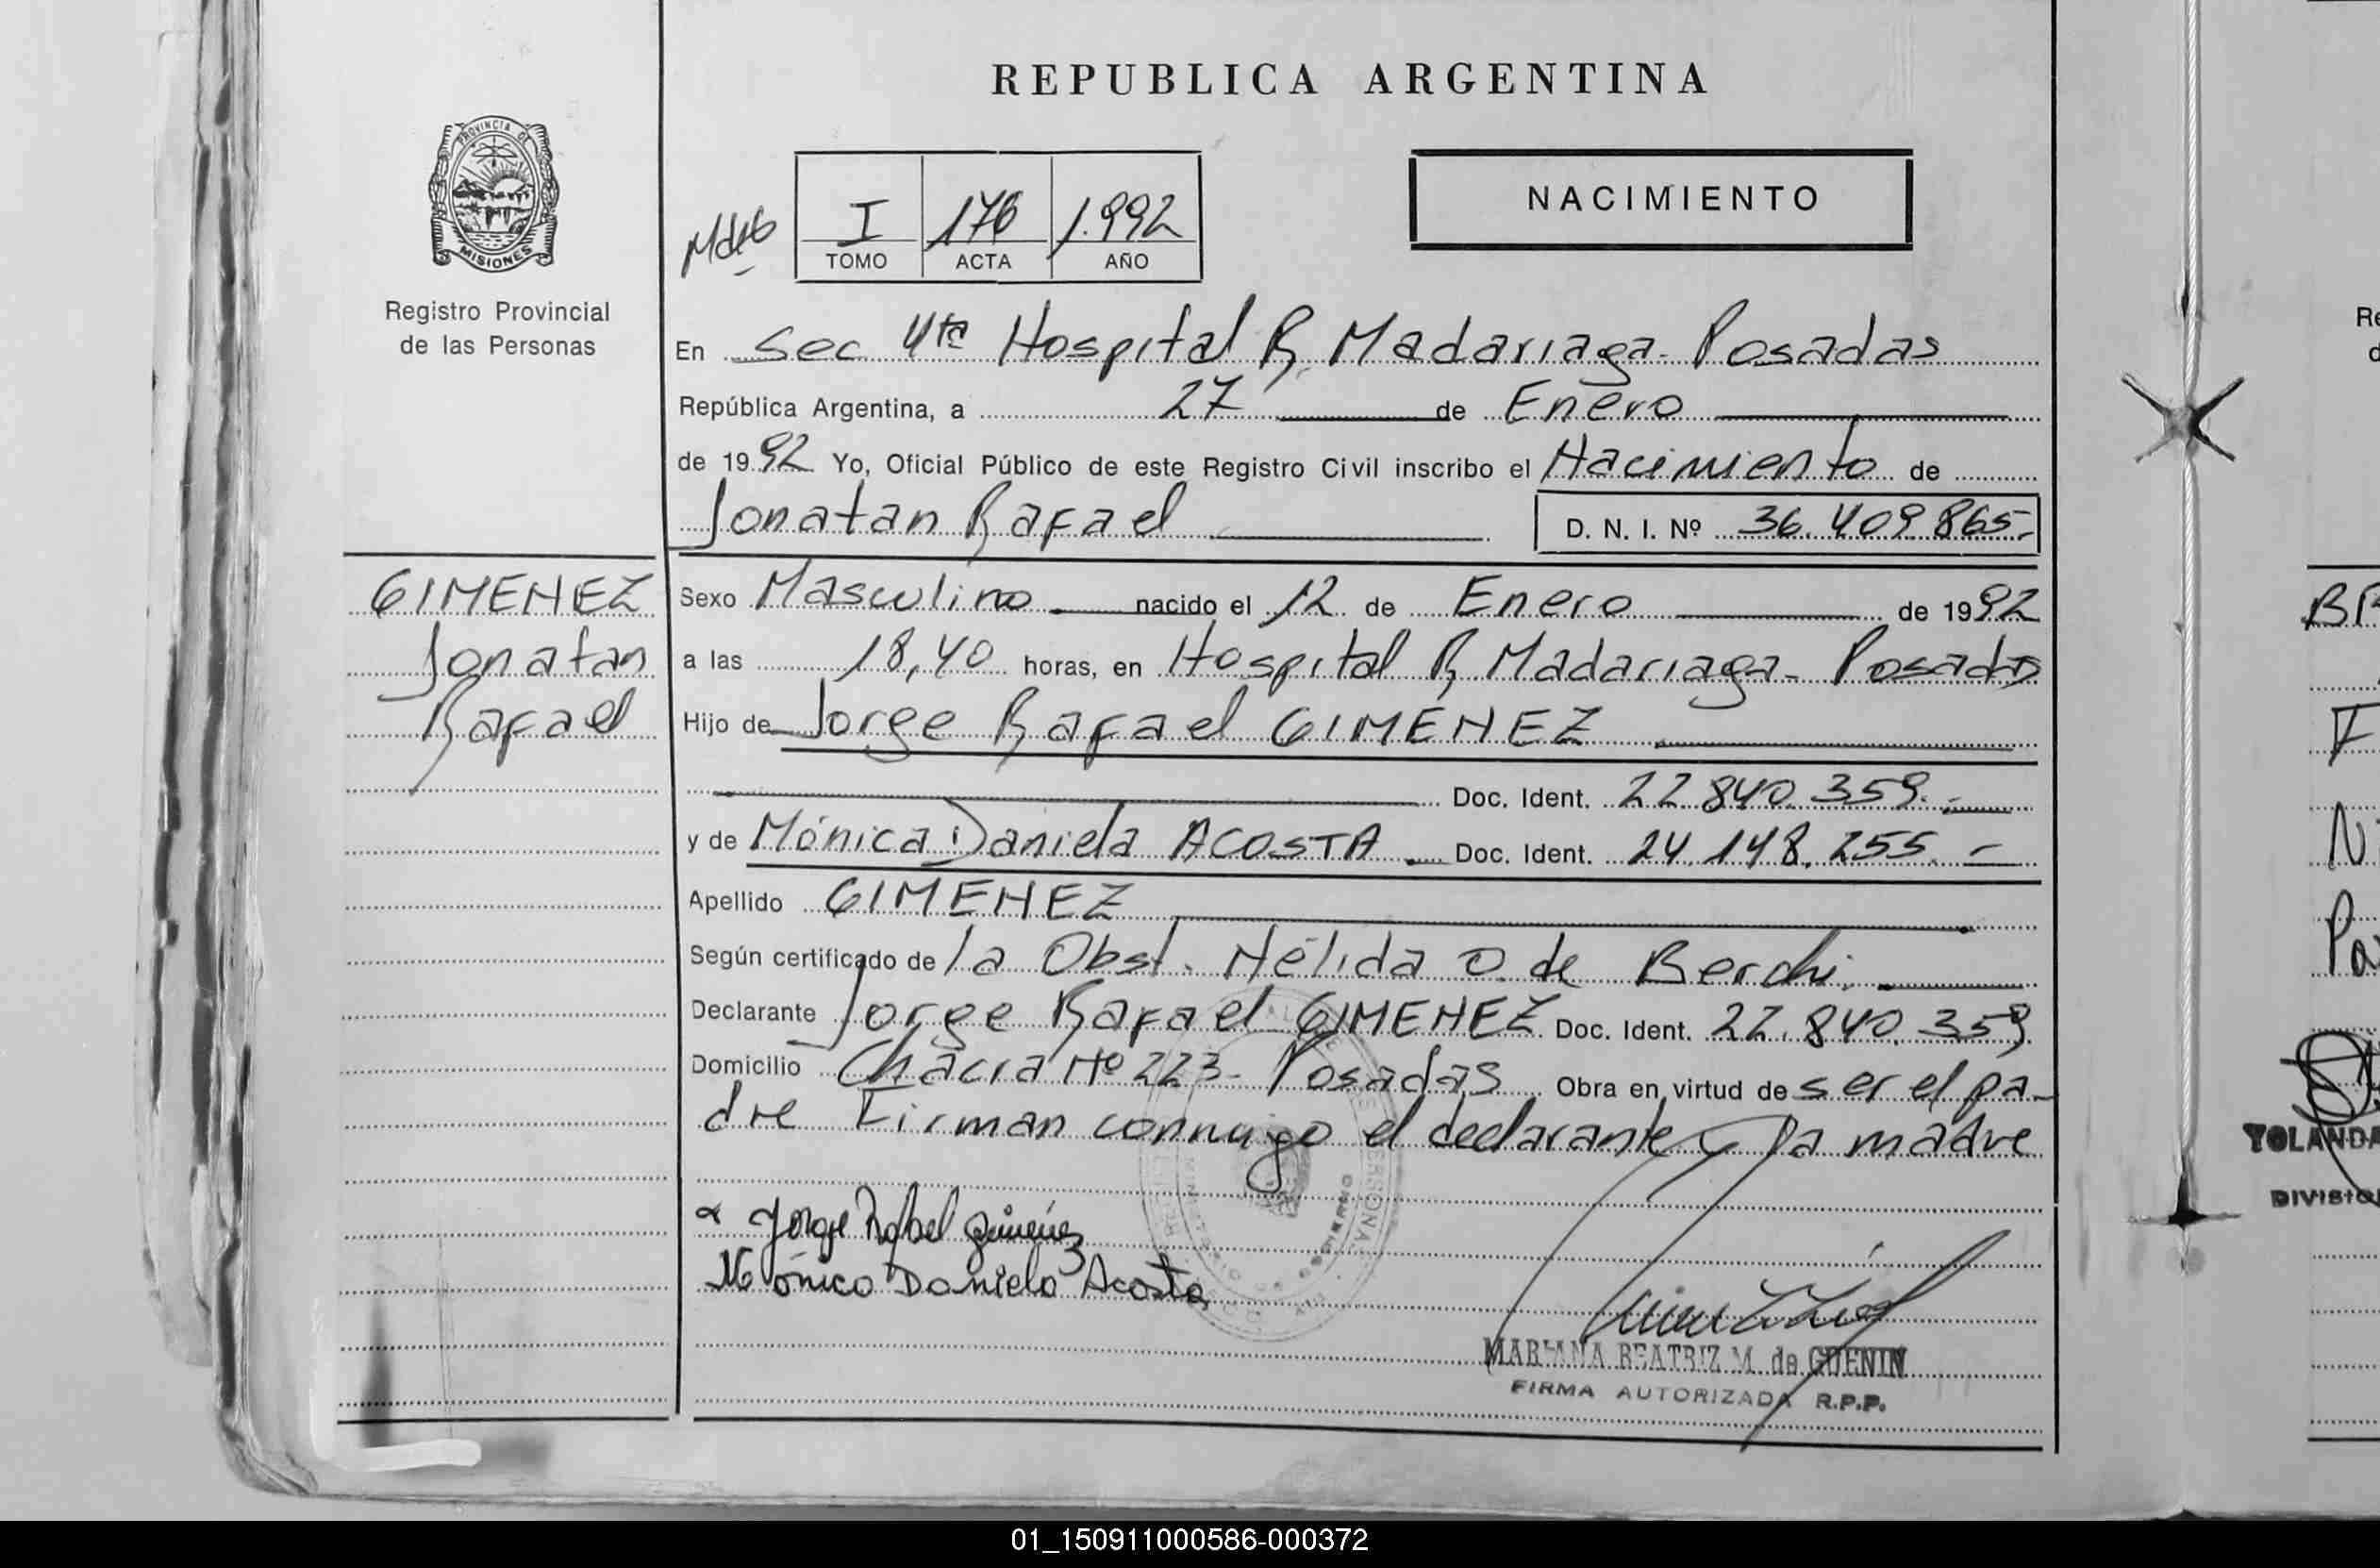 REPUBLICA ARGENTINA
PROVINCIA DE MISIONES
Registro Provincial
de las Personas
NACIMIENTO
I 176 1.992
TOMO ACTA AÑO
En Sec 4ta Hospital R. Madariaga - Posadas
República Argentina, a 27 de Enero
de 1992 Yo, Oficial Público de este Registro Civil inscribo el Nacimiento de
Jonatan Rafael D. N. I. Nº 36.409.865-
GIMENEZ
Jonatan
Rafael
Sexo Masculino nacido el 12 de Enero de 1992
a las 18,40 horas, en Hospital R. Madariaga - Posadas
Hijo de Jorge Rafael GIMENEZ
Doc. Ident. 22.840.359.-
y de Mónica Daniela ACOSTA. Doc. Ident. 24.148.255.-
Apellido GIMENEZ
Según certificado de la Obst. Nélida O. de Berchi.
Declarante Jorge Rafael GIMENEZ Doc. Ident. 22.840.359
Domicilio Chacra Nº 223 - Posadas Obra en virtud de ser el pa-
dre Firman conmigo el declarante y la madre
Jorge Rafael Gimenez
Mónica Daniela Acosta
MARIANA BEATRIZ M. de GUENIN
FIRMA AUTORIZADA R.P.P.
YOLANDA
01_150911000586-000372